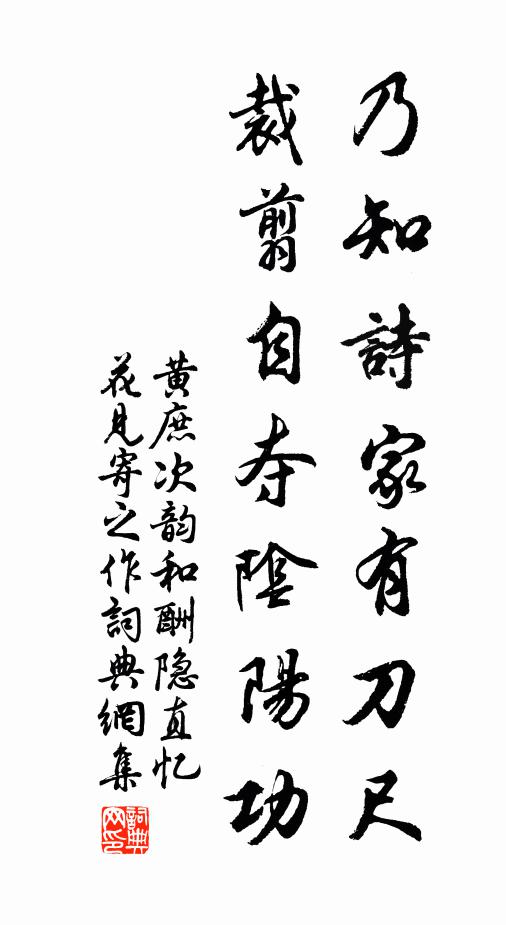 乃知詩家有刀尺
裁翦自夺陰陽功
黄庶次韵和酬隐直忆
花見寄之作詞典網集
詞典网印